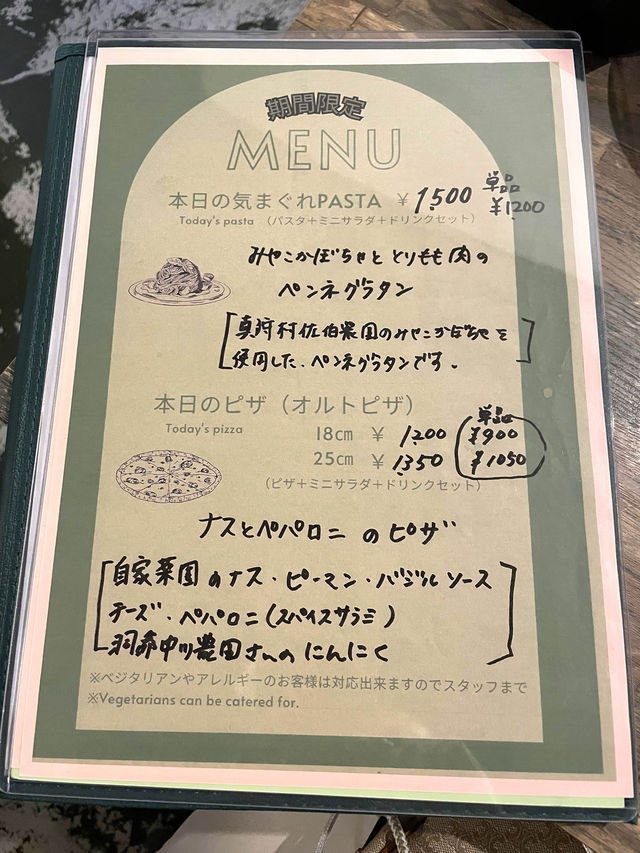 期間限定
MENU
本日の気まぐれPASTA ¥1,500 単品 ¥1200
Today's pasta （パスタ＋ミニサラダ＋ドリンクセット）
みやこかぼちゃと とりもも肉の
ペンネグラタン
真狩村佐伯農園のみやこかぼちゃを
使用した、ペンネグラタンです。
本日のピザ（オルトピザ）
Today's pizza 単品
18cm ¥ 1,200 ¥900
25cm ¥ 1,350 ¥1050
（ピザ＋ミニサラダ＋ドリンクセット）
ナスとペパロニ のピザ
自家菜園のナス・ピーマン・バジルソース
チーズ・ペパロニ（スパイスサラミ）
洞爺中川農園さんのにんにく
※ベジタリアンやアレルギーのお客様は対応出来ますのでスタッフまで
※Vegetarians can be catered for.